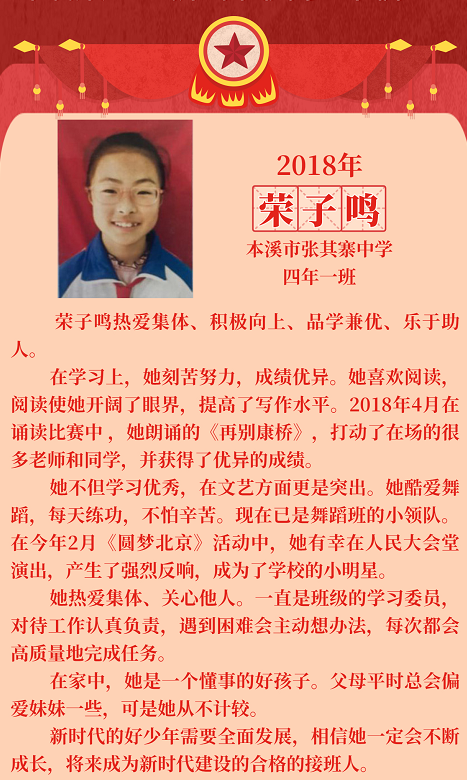 2018年
荣子鸣
本溪市张其寨中学
四年一班
荣子鸣热爱集体、积极向上、品学兼优、乐于助
人。
在学习上，她刻苦努力，成绩优异。她喜欢阅读，
阅读使她开阔了眼界，提高了写作水平。2018年4月在
诵读比赛中，她朗诵的《再别康桥》，打动了在场的很
多老师和同学，并获得了优异的成绩。
她不但学习优秀，在文艺方面更是突出。她酷爱舞
蹈，每天练功，不怕辛苦。现在已是舞蹈班的小领队。
在今年2月《圆梦北京》活动中，她有幸在人民大会堂
演出，产生了强烈反响，成为了学校的小明星。
她热爱集体、关心他人。一直是班级的学习委员，
对待工作认真负责，遇到困难会主动想办法，每次都会
高质量地完成任务。
在家中，她是一个懂事的好孩子。父母平时总会偏
爱妹妹一些，可是她从不计较。
新时代的好少年需要全面发展，相信她一定会不断
成长，将来成为新时代建设的合格的接班人。